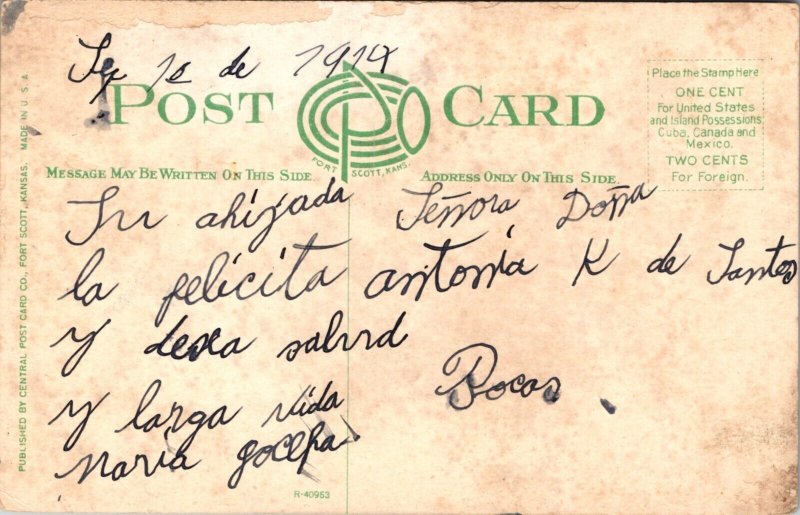 Sep 1s de 1914
POST CARD
FORT SCOTT, KANS.
Place the Stamp Here
ONE CENT
For United States
and Island Possessions,
Cuba, Canada and
Mexico.
TWO CENTS
For Foreign.
MESSAGE MAY BE WRITTEN ON THIS SIDE.
ADDRESS ONLY ON THIS SIDE.
Su ahijada
la felicita
y desea salurd
y larga vida
Maria gocefa.
Señora Doña
Antonia K de Santos
Bocas.
R-40953
PUBLISHED BY CENTRAL POST CARD CO., FORT SCOTT, KANSAS. MADE IN U.S.A.